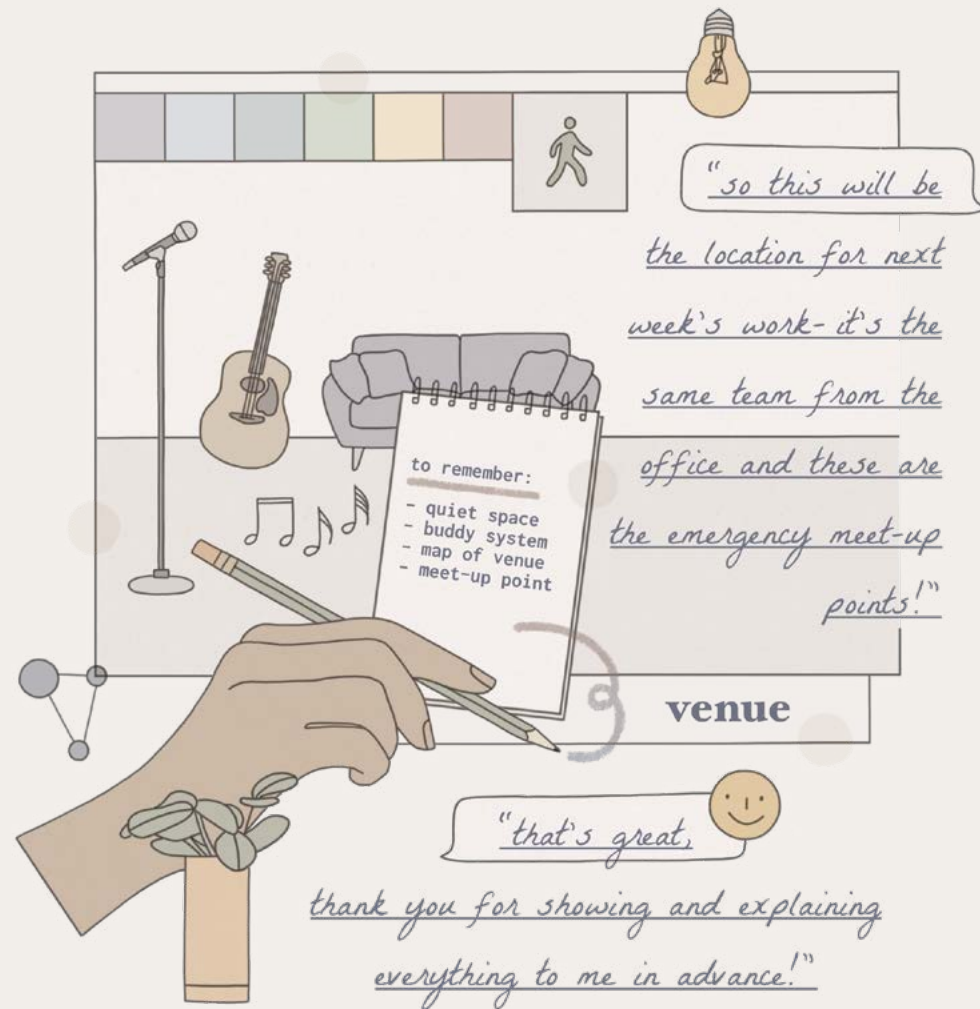 "so this will be
the location for next
week's work- it's the
same team from the
office and these are
the emergency meet-up
points!"
to remember:
- quiet space
- buddy system
- map of venue
- meet-up point
venue
"that's great,
thank you for showing and explaining
everything to me in advance!"